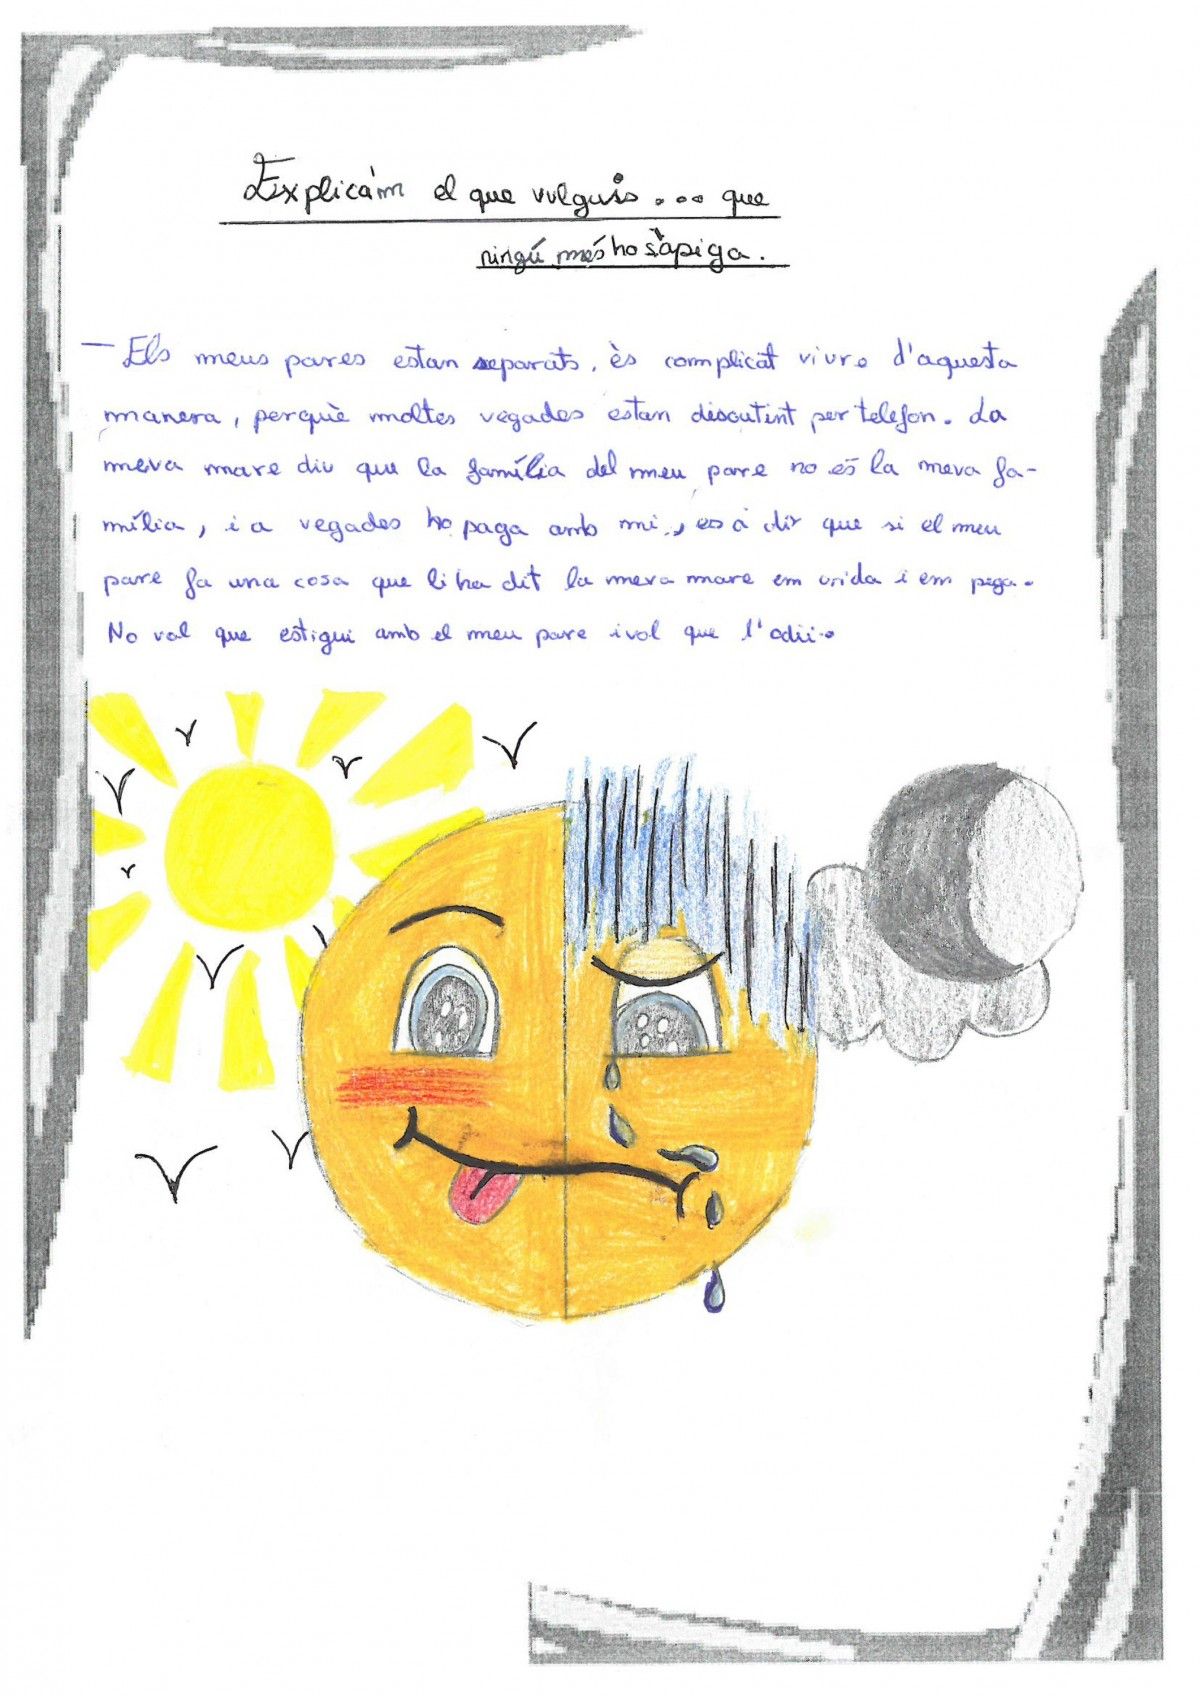 Explica'm el que vulguis... que
ningú més ho sàpiga.
— Els meus pares estan separats, ès complicat viure d'aquesta
manera, perquè moltes vegades estan discutint per telefon. La
meva mare diu que la família del meu pare no és la meva fa-
mília, i a vegades ho paga amb mi, es a dir que si el meu
pare fa una cosa que li ha dit la meva mare em crida i em pega.
No vol que estigui amb el meu pare i vol que l'odii.